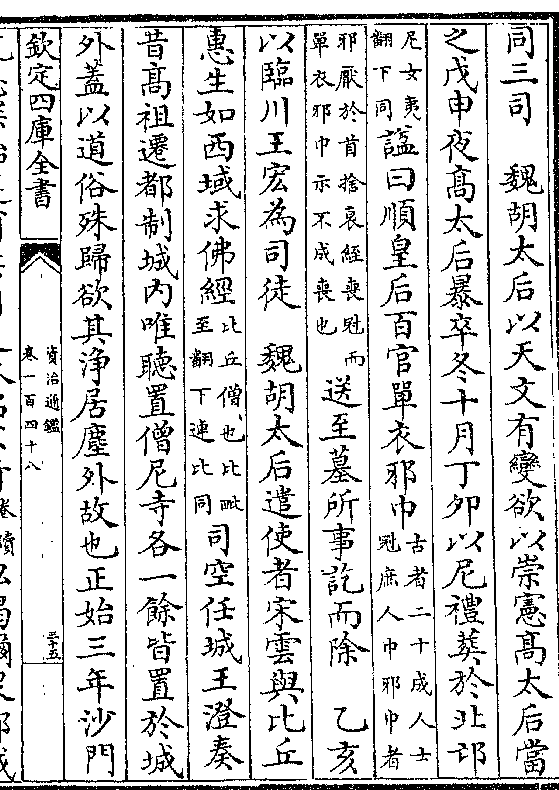 同三司　魏胡太后以天文有變欲以崇憲髙太后當
之戊申夜髙太后暴卒冬十月丁卯以尼禮葬於北邙
尼女夷翻下同諡曰順皇后百官單衣邪巾古者二十成人士冠庶人巾邪巾者
邪厭於首捨衰絰喪冠而單衣邪巾示不成喪也送至墓所事訖而除　乙亥
以臨川王宏為司徒　魏胡太后遣使者宋雲與比丘
惠生如西域求佛經比丘僧也比毗至翻下連比同司空任城王澄奏
昔髙祖遷都制城内唯聽置僧尼寺各一餘皆置於城
外蓋以道俗殊歸欲其浄居塵外故也正始三年沙門
欽定四庫全書
資治通鑑
卷一百四十八
三十五